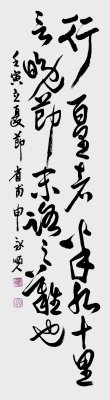 行百里者半九十里
言晚節末路之難也
壬寅立夏節 省甫 申永